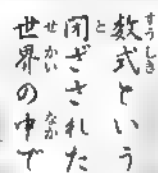 数式という
閉ざされた
世界の中で